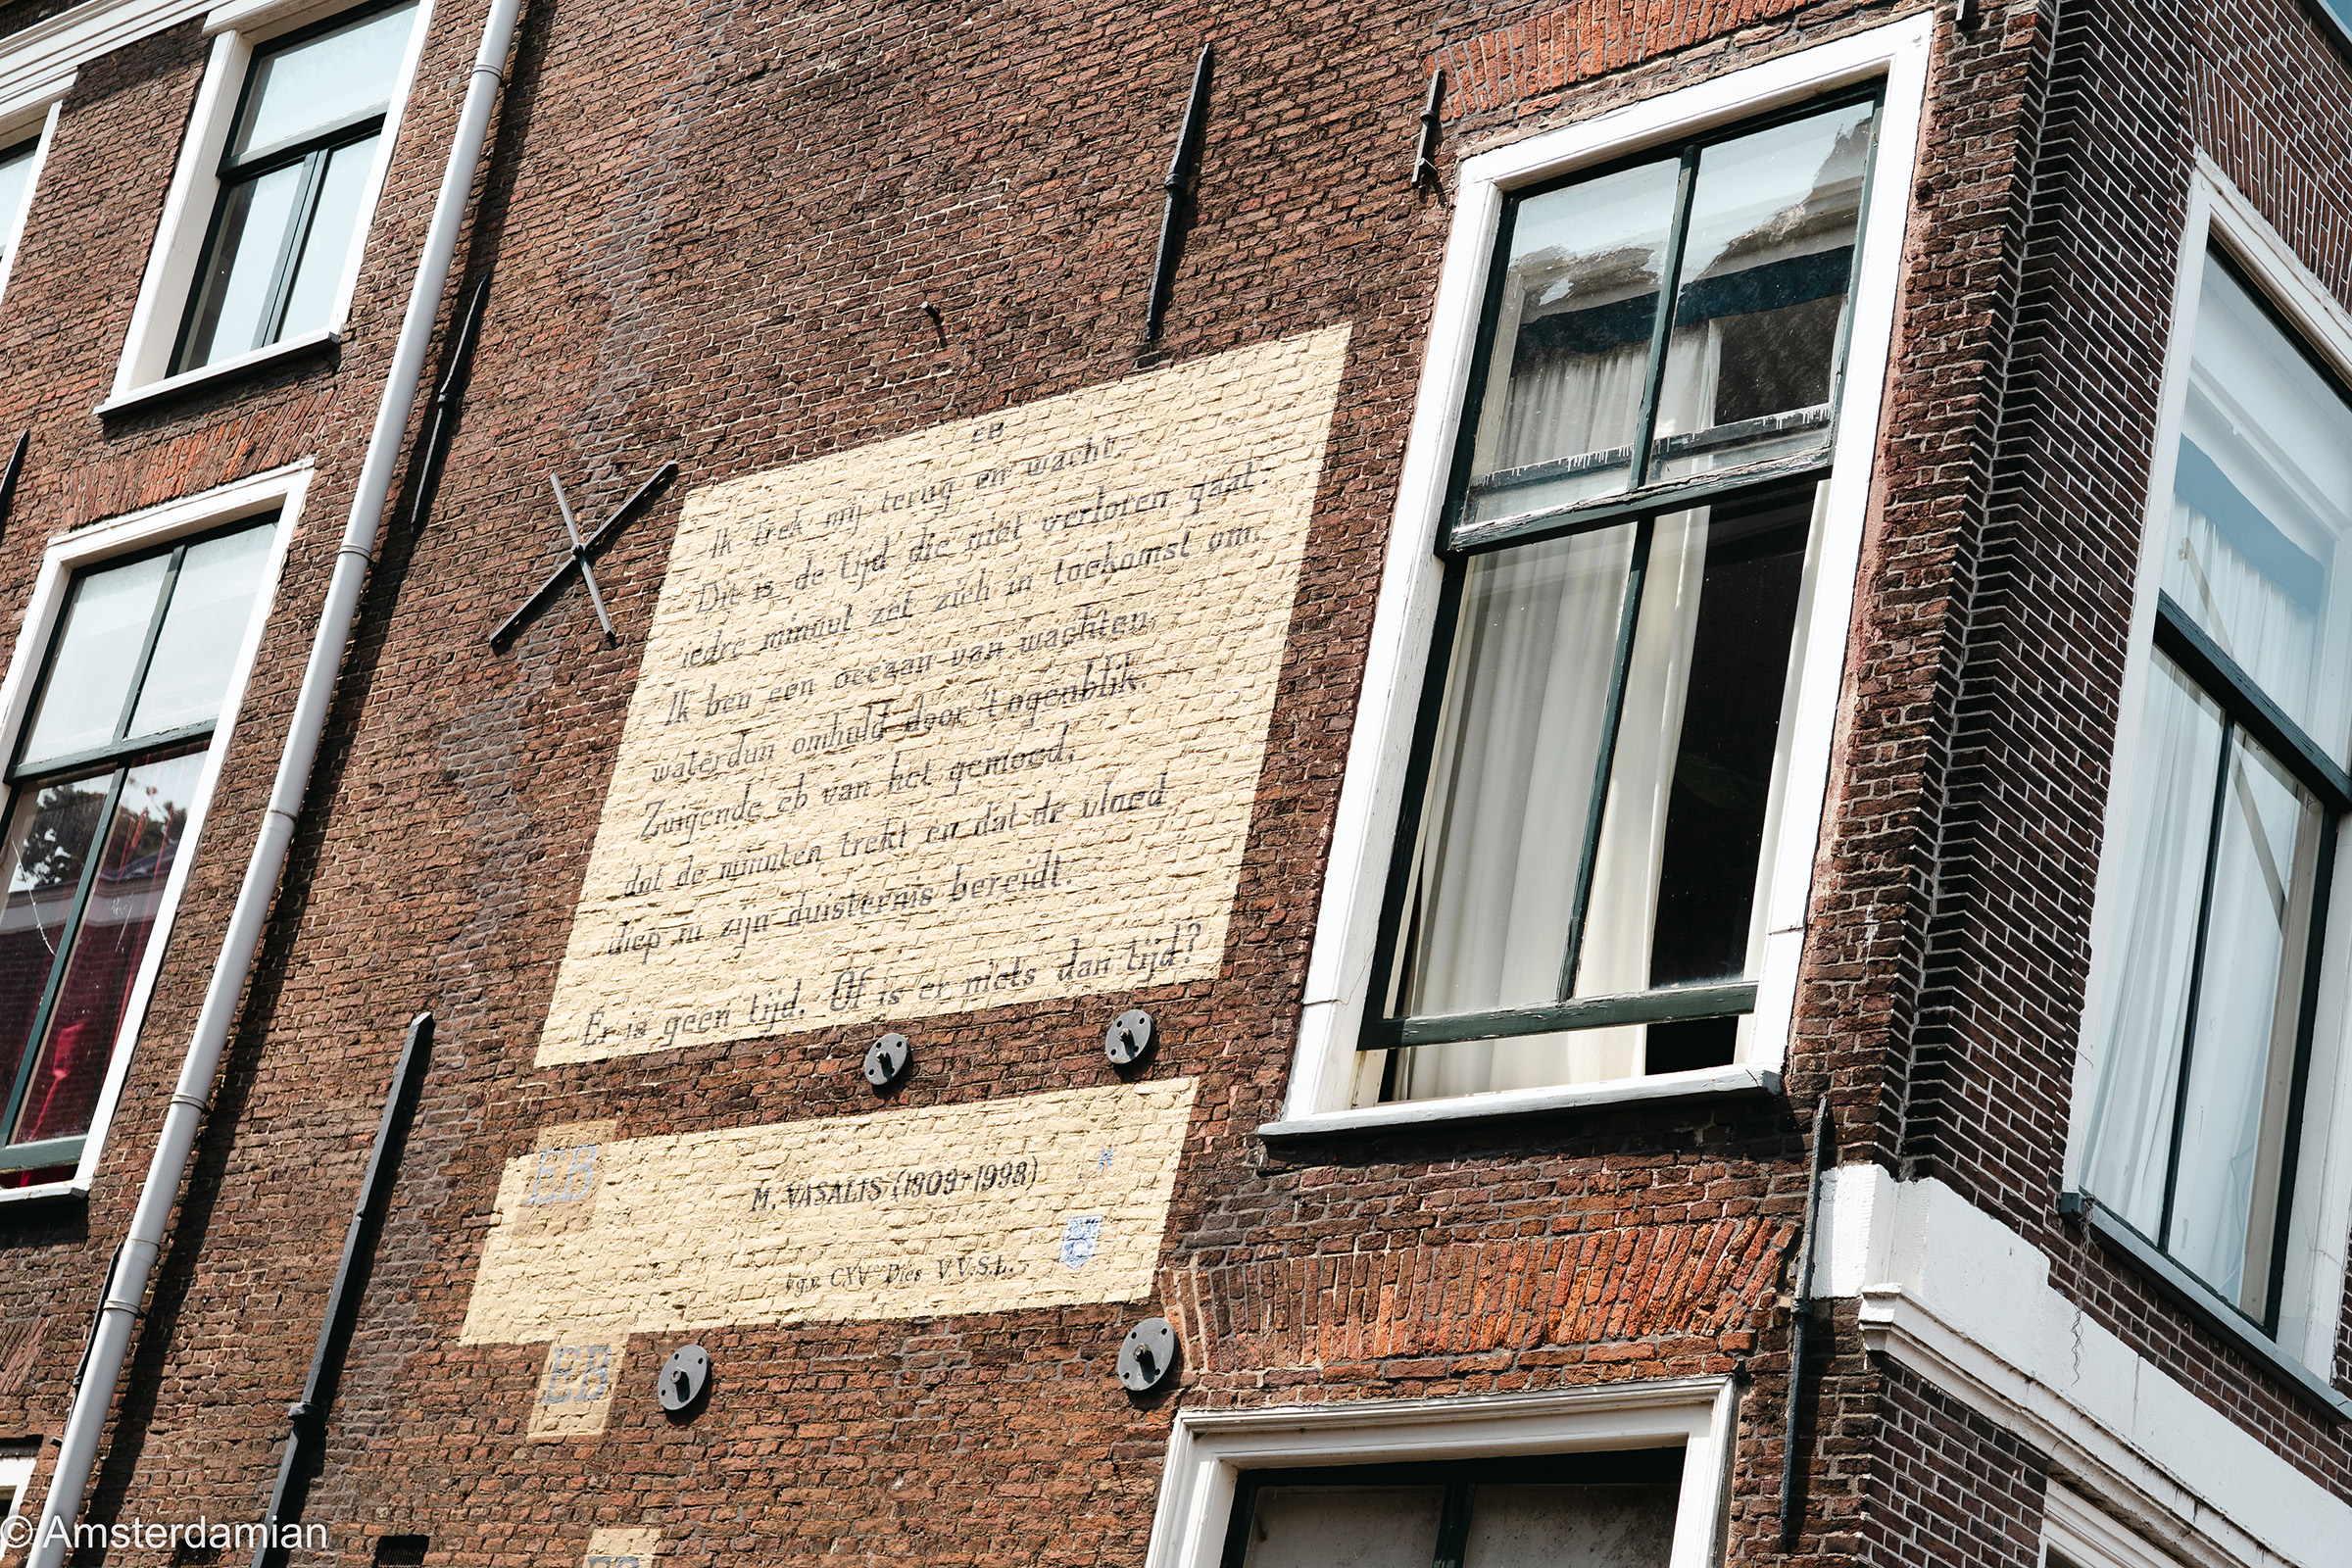 EB
Ik trek mij terug en wacht.
Dit is de tijd die niet verloren gaat:
iedre minuut zet zich in toekomst om.
Ik ben een oceaan van wachten,
waterdun omhuld door 't ogenblik.
Zuigende eb van het gemoed,
dat de minuten trekt en dat de vloed
diep in zijn duisternis bereidt.
Er is geen tijd. Of is er niets dan tijd?
EB
M. VASALIS (1909-1998)
t.g.v. CXVde Dies V.V.S.L.
EB
EB
© Amsterdamian